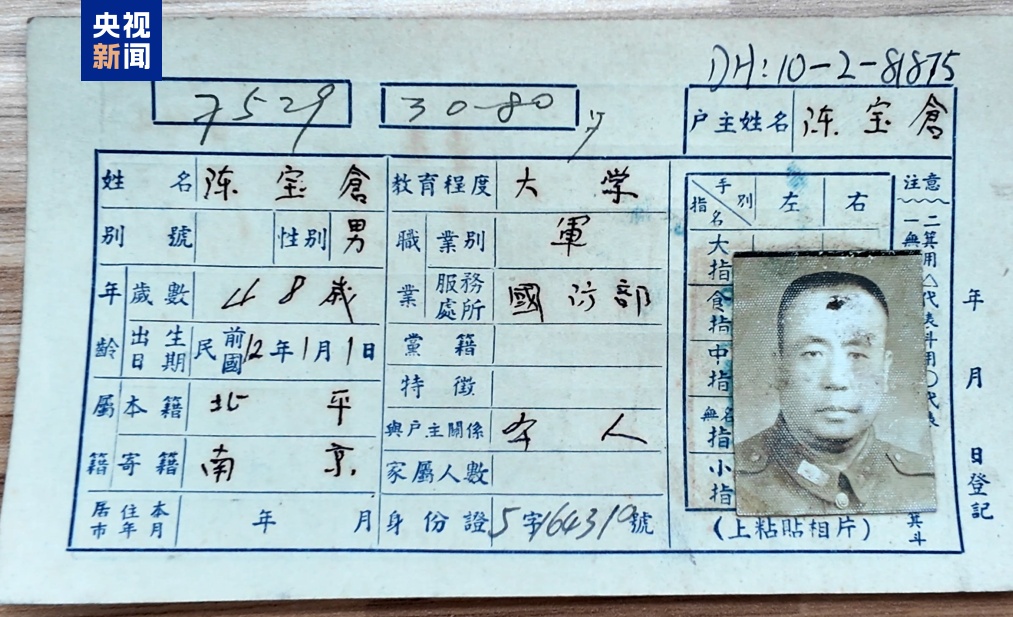 央视
新闻
DH:10-2-81875
7529
30-80
户主姓名 陈宝倉
姓名 陈宝倉 教育程度 大学
別號 性別 男 職業 業別 軍
年齡 歲數 48歲 服務處所 國防部
出生日期 民國前12年1月1日 黨籍
特徵
屬籍 本籍 北平 與户主關係 本人
寄籍 南京 家屬人數
居住本市年月 年 月 身份證 5字164319號
手別 指名 左 右
大指
食指
中指
無名指
小指
(上粘貼相片)
注意
二箕用△代表斗用〇代表
一無
箕斗
年 月 日登記